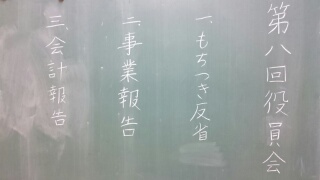 第八回役員会
一、もちつき反省
二、事業報告
三、会計報告